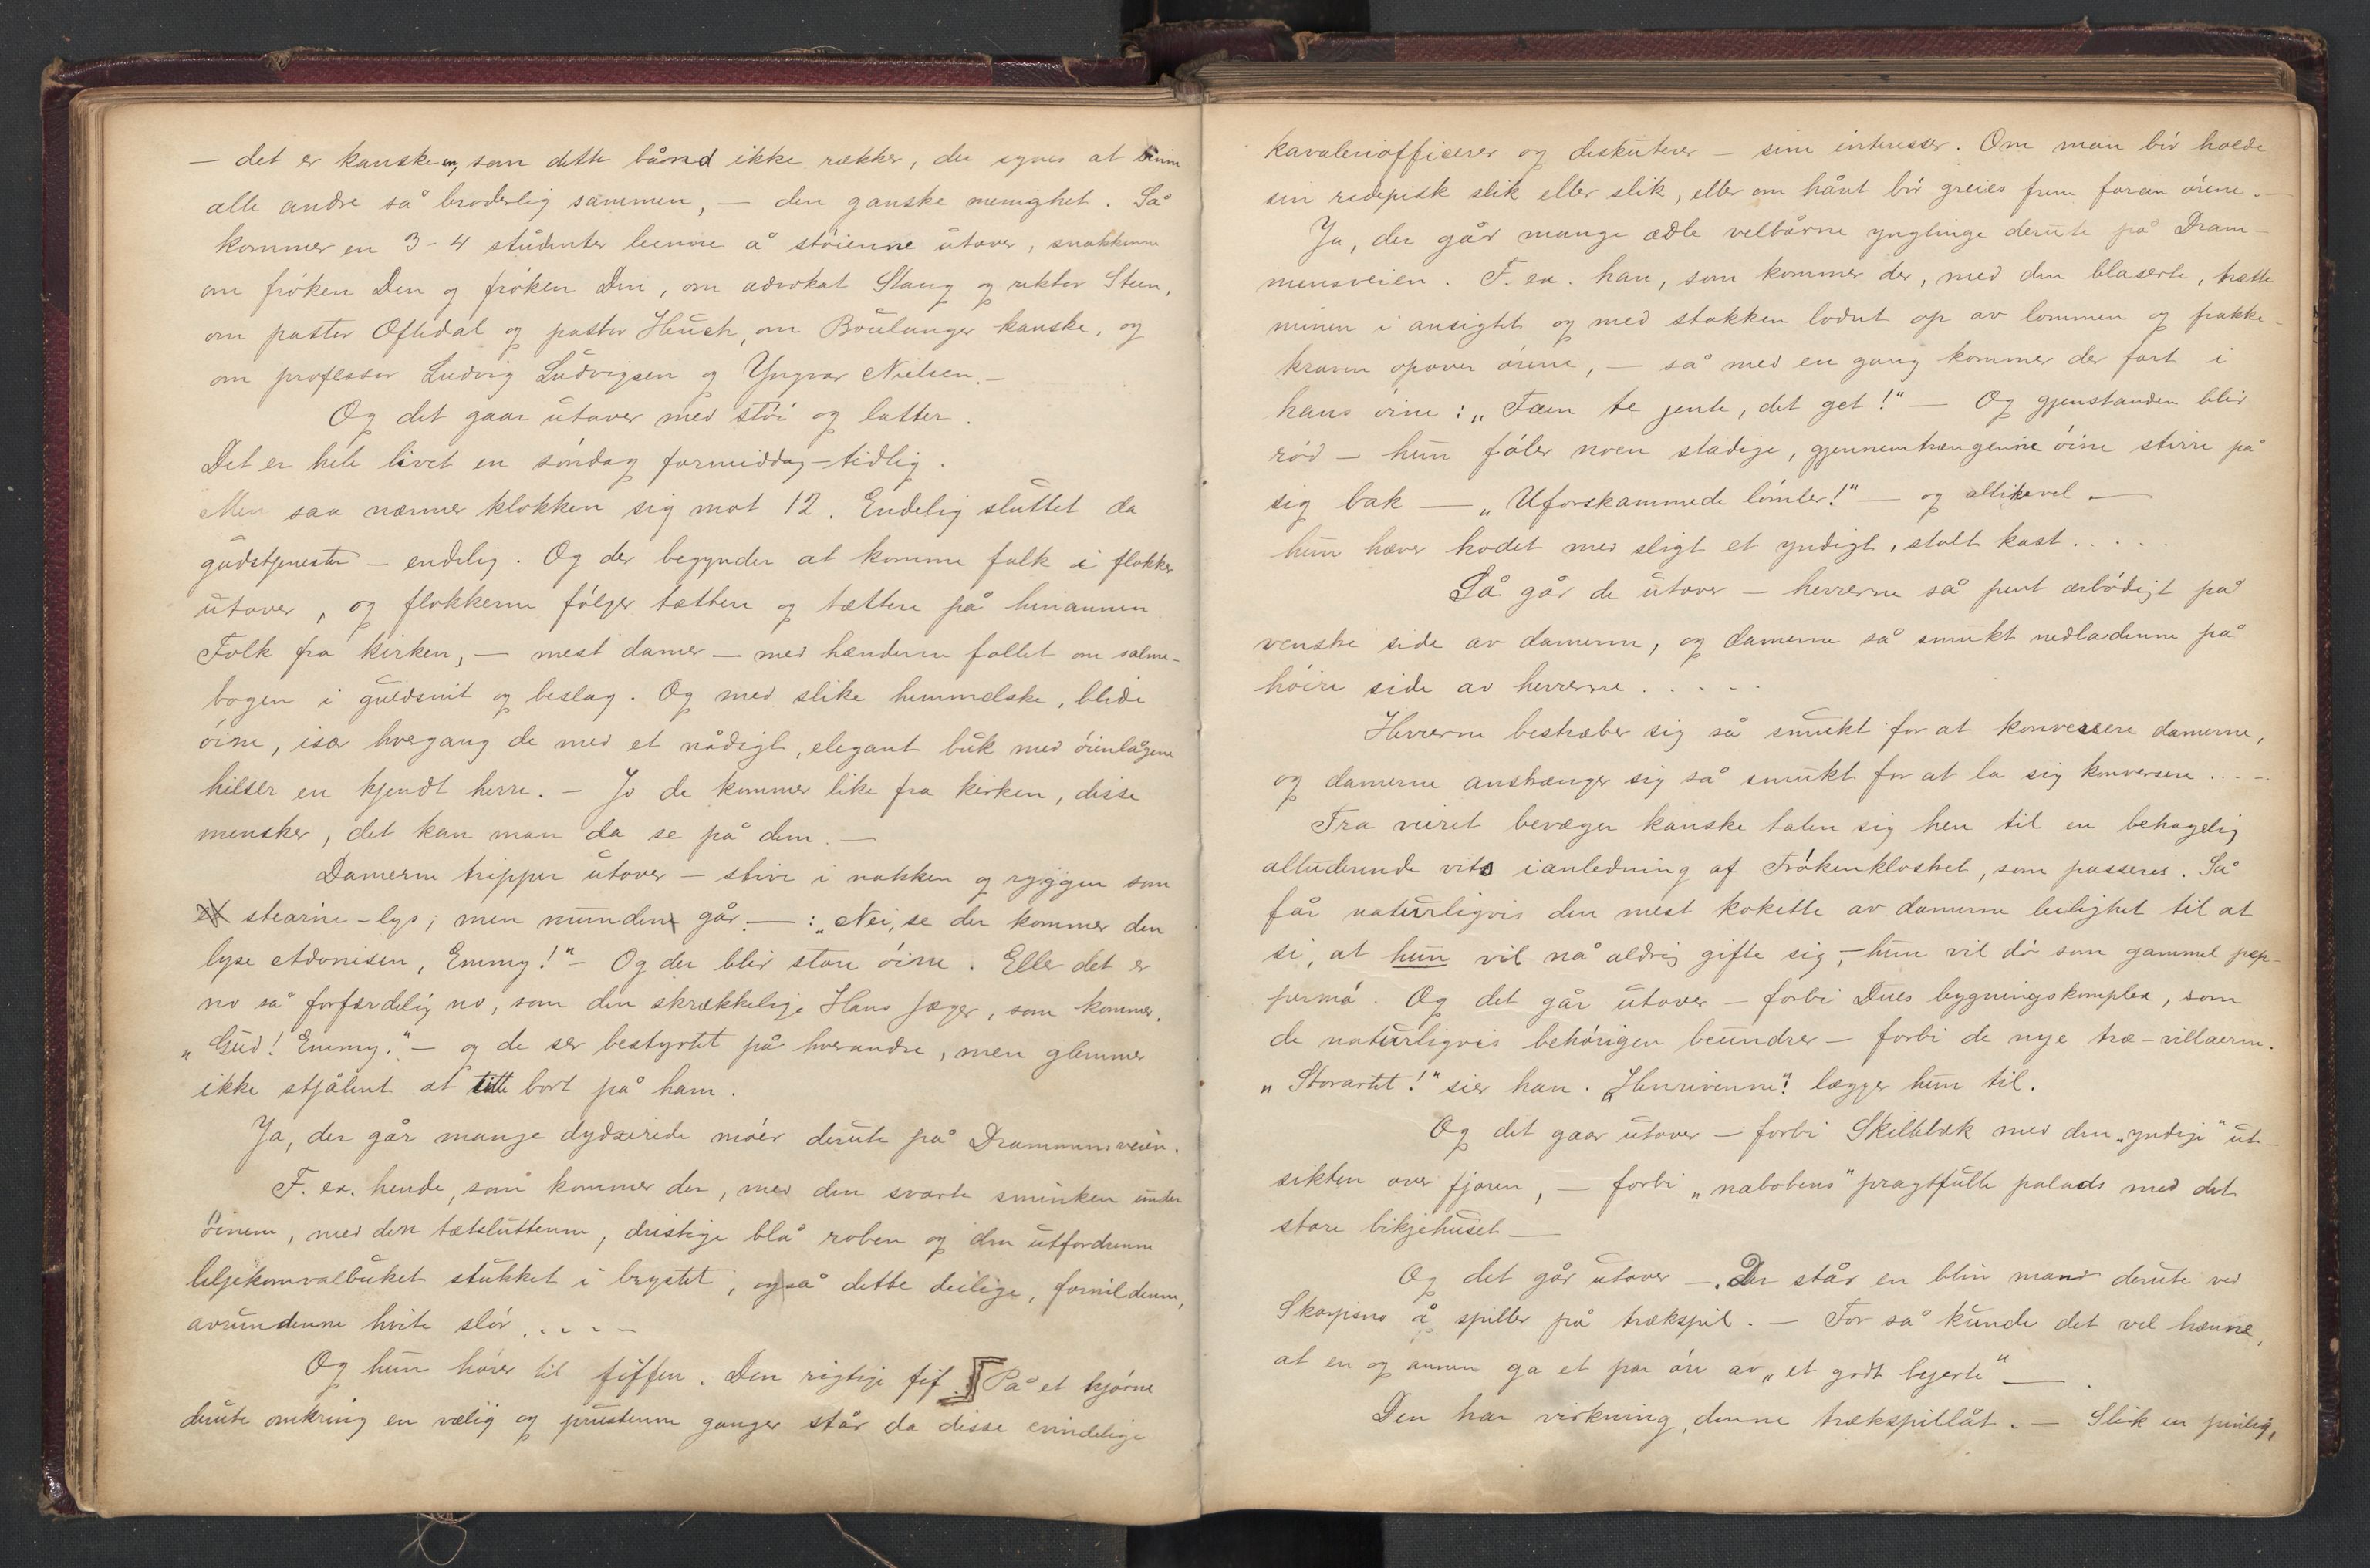 — det er kanske en, som dette bånd ikke rækker, der synes at binne
alle andre så broderlig sammen, — den ganske menighet. Så
kommer en 3-4 studenter leenne å støienne utover, snakkenne
om frøken Den og frøken Den, om advokat Stang og rektor Steen,
om pastor Oftedal og pastor Heuch, om Boulanger kanske, og
om professor Ludvig Ludvigsen og Yngvar Nielsen. —
Og det gaar utover med støi og latter.
Det er hele livet en søndag formiddag – tidlig.
Men saa nærmer klokken sig mot 12. Endelig sluttet da
gudstjenesten – endelig. Og der begynder at komme folk i flokker
utover, og flokkerne følger tættere og tættere på hinannen
Folk fra kirken, — mest damer — med hænderne follet om salme-
bogen i guldsnit og beslag. Og med slike himmelske, blide
øine, især hvergang de med et nådigt, elegant buk med øienlågene
hilser en kjendt herre. — Jo de kommer like fra kirken, disse
mensker, det kan man da se på dem. —
Damerne tripper utover — stive i nakken og ryggen som
et stearin-lys; men munden går. — : „Nei, se der kommer den
lyse Adonisen, Emmy!" – Og der blir store øine. Eller det er
no så forfærdelig no, som den skrækkelige Hans Jæger, som kommer.
„Gud! Emmy." – og de ser bestyrtet på hverandre, men glemmer
ikke stjålent at titte bort på ham.
Ja, der går mange dydzirede møer derute på Drammensveien.
F. ex. hende, som kommer der, med den svarte sminken under
øinene, med den tætsluttenne, dristige blå roben og den utfordrenne
liljekonvalbuket stukket i brystet, også dette deilige, formildenne,
avrundenne hvite slør. . . . –
Og hun hører til fiffen. Den rigtige fif. [På et hjørne
derute omkring en vælig og prustenne ganger står da disse evindelige
kavaleriofficerer og diskuterer — sine interesser. Om man bør holde
sin ridepisk slik eller slik, eller om håret bør greies frem foran ørene. —
Ja, der går mange ædle velbårne ynglinge derute på Dram-
mensveien. F. ex. han, som kommer der, med den blaserte, trætte
minen i ansigtet og med stokken loddret op av lommen og frakke-
kraven opover ørene, — så med en gang kommer der fart i
hans øine: „Faen te jente, det get!" — Og gjenstanden blir
rød — hun føler noen stadige, gjennemtrængenne øine stirre på
sig bak — „Uforskammede lømler!" — og allikevel. —
hun hæver hodet med sligt et yndigt, stolt kast. . . . .
Så går de utover — herrerne så pent ærbødigt på
venstre side av damerne, og damerne så smukt nedladenne på
høire side av herrerne. . . . .
Herrerne bestræber sig så smukt for at konversere damerne,
og damerne anstrænger sig så smukt for at la sig konversere. . . .
Fra veiret bevæger kanske talen sig hen til en behagelig
alluderende vits i anledning af Frøkenklostret, som passeres. Så
får naturligvis den mest kokette av damerne leilighet til at
si, at hun vil nå aldrig gifte sig, – hun vil dø som gammel pep-
permø. Og det går utover – forbi Dues bygningskomplex, som
de naturligvis behørigen beundrer – forbi de nye træ-villaerne.
„Storartet!" sier han. „Henrivenne" lægger hun til.
Og det gaar utover – forbi Skillebæk med den „yndige" ut-
sikten over fjoren, — forbi „nabobens" pragtfulle palads med det
store bikjehuset —
Og det går utover —. Der står en blin mand derute ved
Skarpsno å spiller på trækspil. — For så kunde det vel hænne,
at en og annen ga et par øre av „et godt hjerte" —
Den har virkning, denne trækspillåt. — Slik en pinlig,